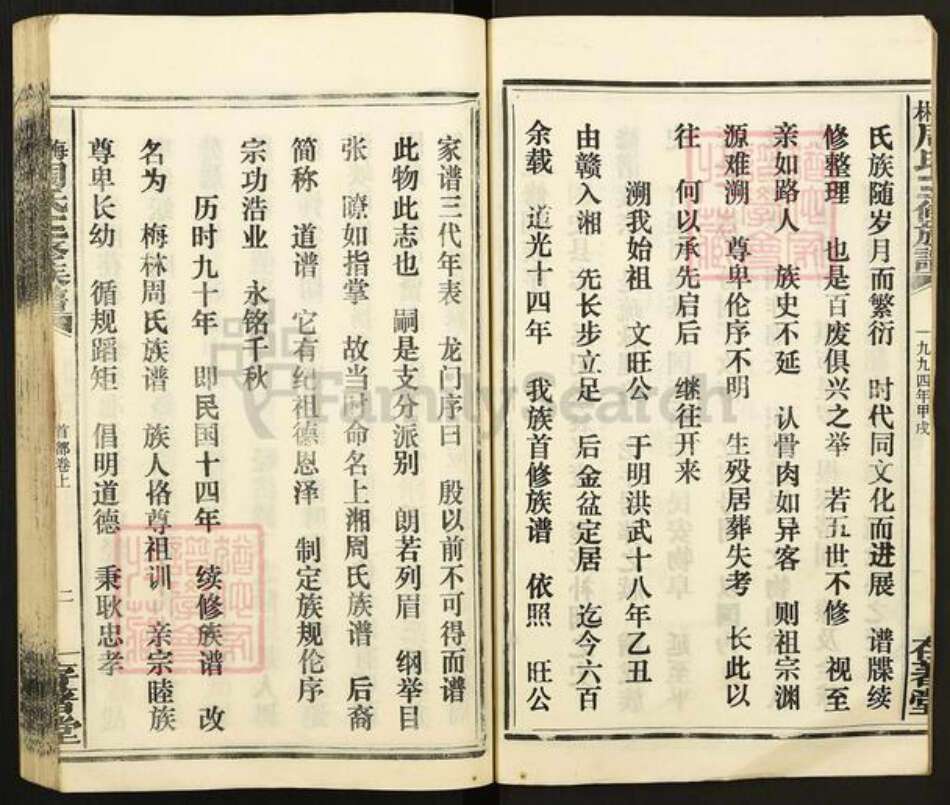 氏族随岁月而繁衍 时代同文化而进展 谱牒续
修整理 也是百废俱兴之举 若五世不修 视至
亲如路人 族史不延 认骨肉如异客 则祖宗渊
源难溯 尊卑伦序不明 生殁居葬失考 长此以
往 何以承先启后 继往开来
溯我始祖 文旺公 于明洪武十八年乙丑
由赣入湘 先长步立足 后金盆定居 迄今六百
余载 道光十四年 我族首修族谱 依照 旺公
一九九四年甲戌
家谱三代年表 龙门序曰 殷以前不可得而谱
此物此志也 嗣是支分派别 朗若列眉 纲举目
张 瞭如指掌 故当时命名上湘周氏族谱 后裔
简称 道谱 它有纪祖德恩泽 制定族规伦序
宗功浩业 永铭千秋
历时九十年 即民国十四年 续修族谱 改
名为 梅林周氏族谱 族人恪尊祖训 亲宗睦族
尊卑长幼 循规蹈矩 倡明道德 秉耿忠孝
首部卷上
二
FamilySearch